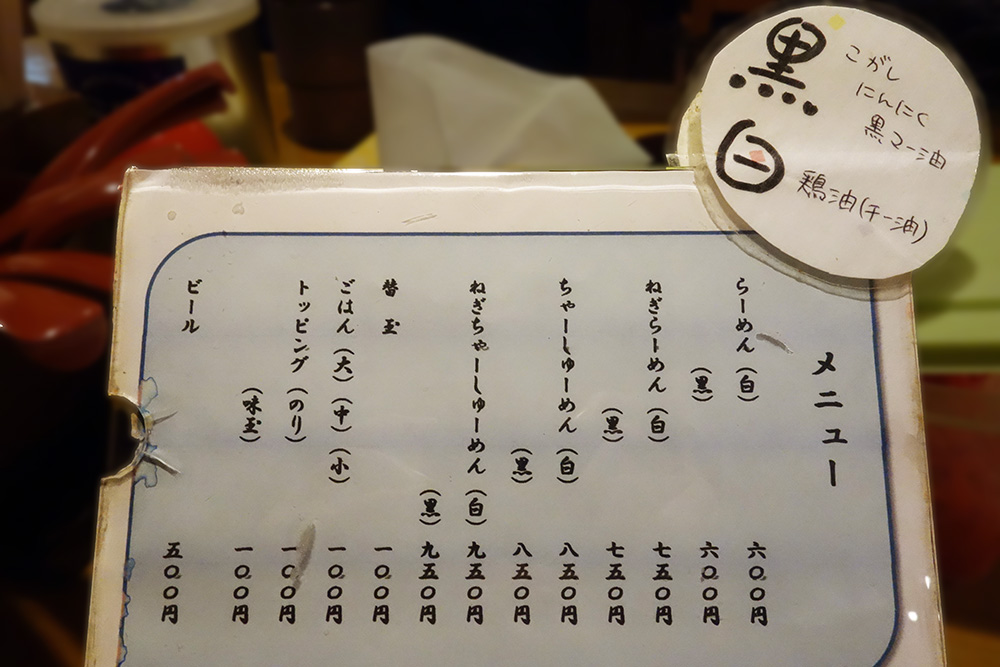 黒
こがし
にんにく
黒マー油
白
鶏油(チー油)
メニュー
らーめん(白) 六〇〇円
(黒) 六〇〇円
ねぎらーめん(白) 七五〇円
(黒) 七五〇円
ちゃーしゅーめん(白) 八五〇円
(黒) 八五〇円
ねぎちゃーしゅーめん(白) 九五〇円
(黒) 九五〇円
替玉 一〇〇円
ごはん(大)(中)(小) 一〇〇円
トッピング(のり) 一〇〇円
(味玉) 一〇〇円
ビール 五〇〇円